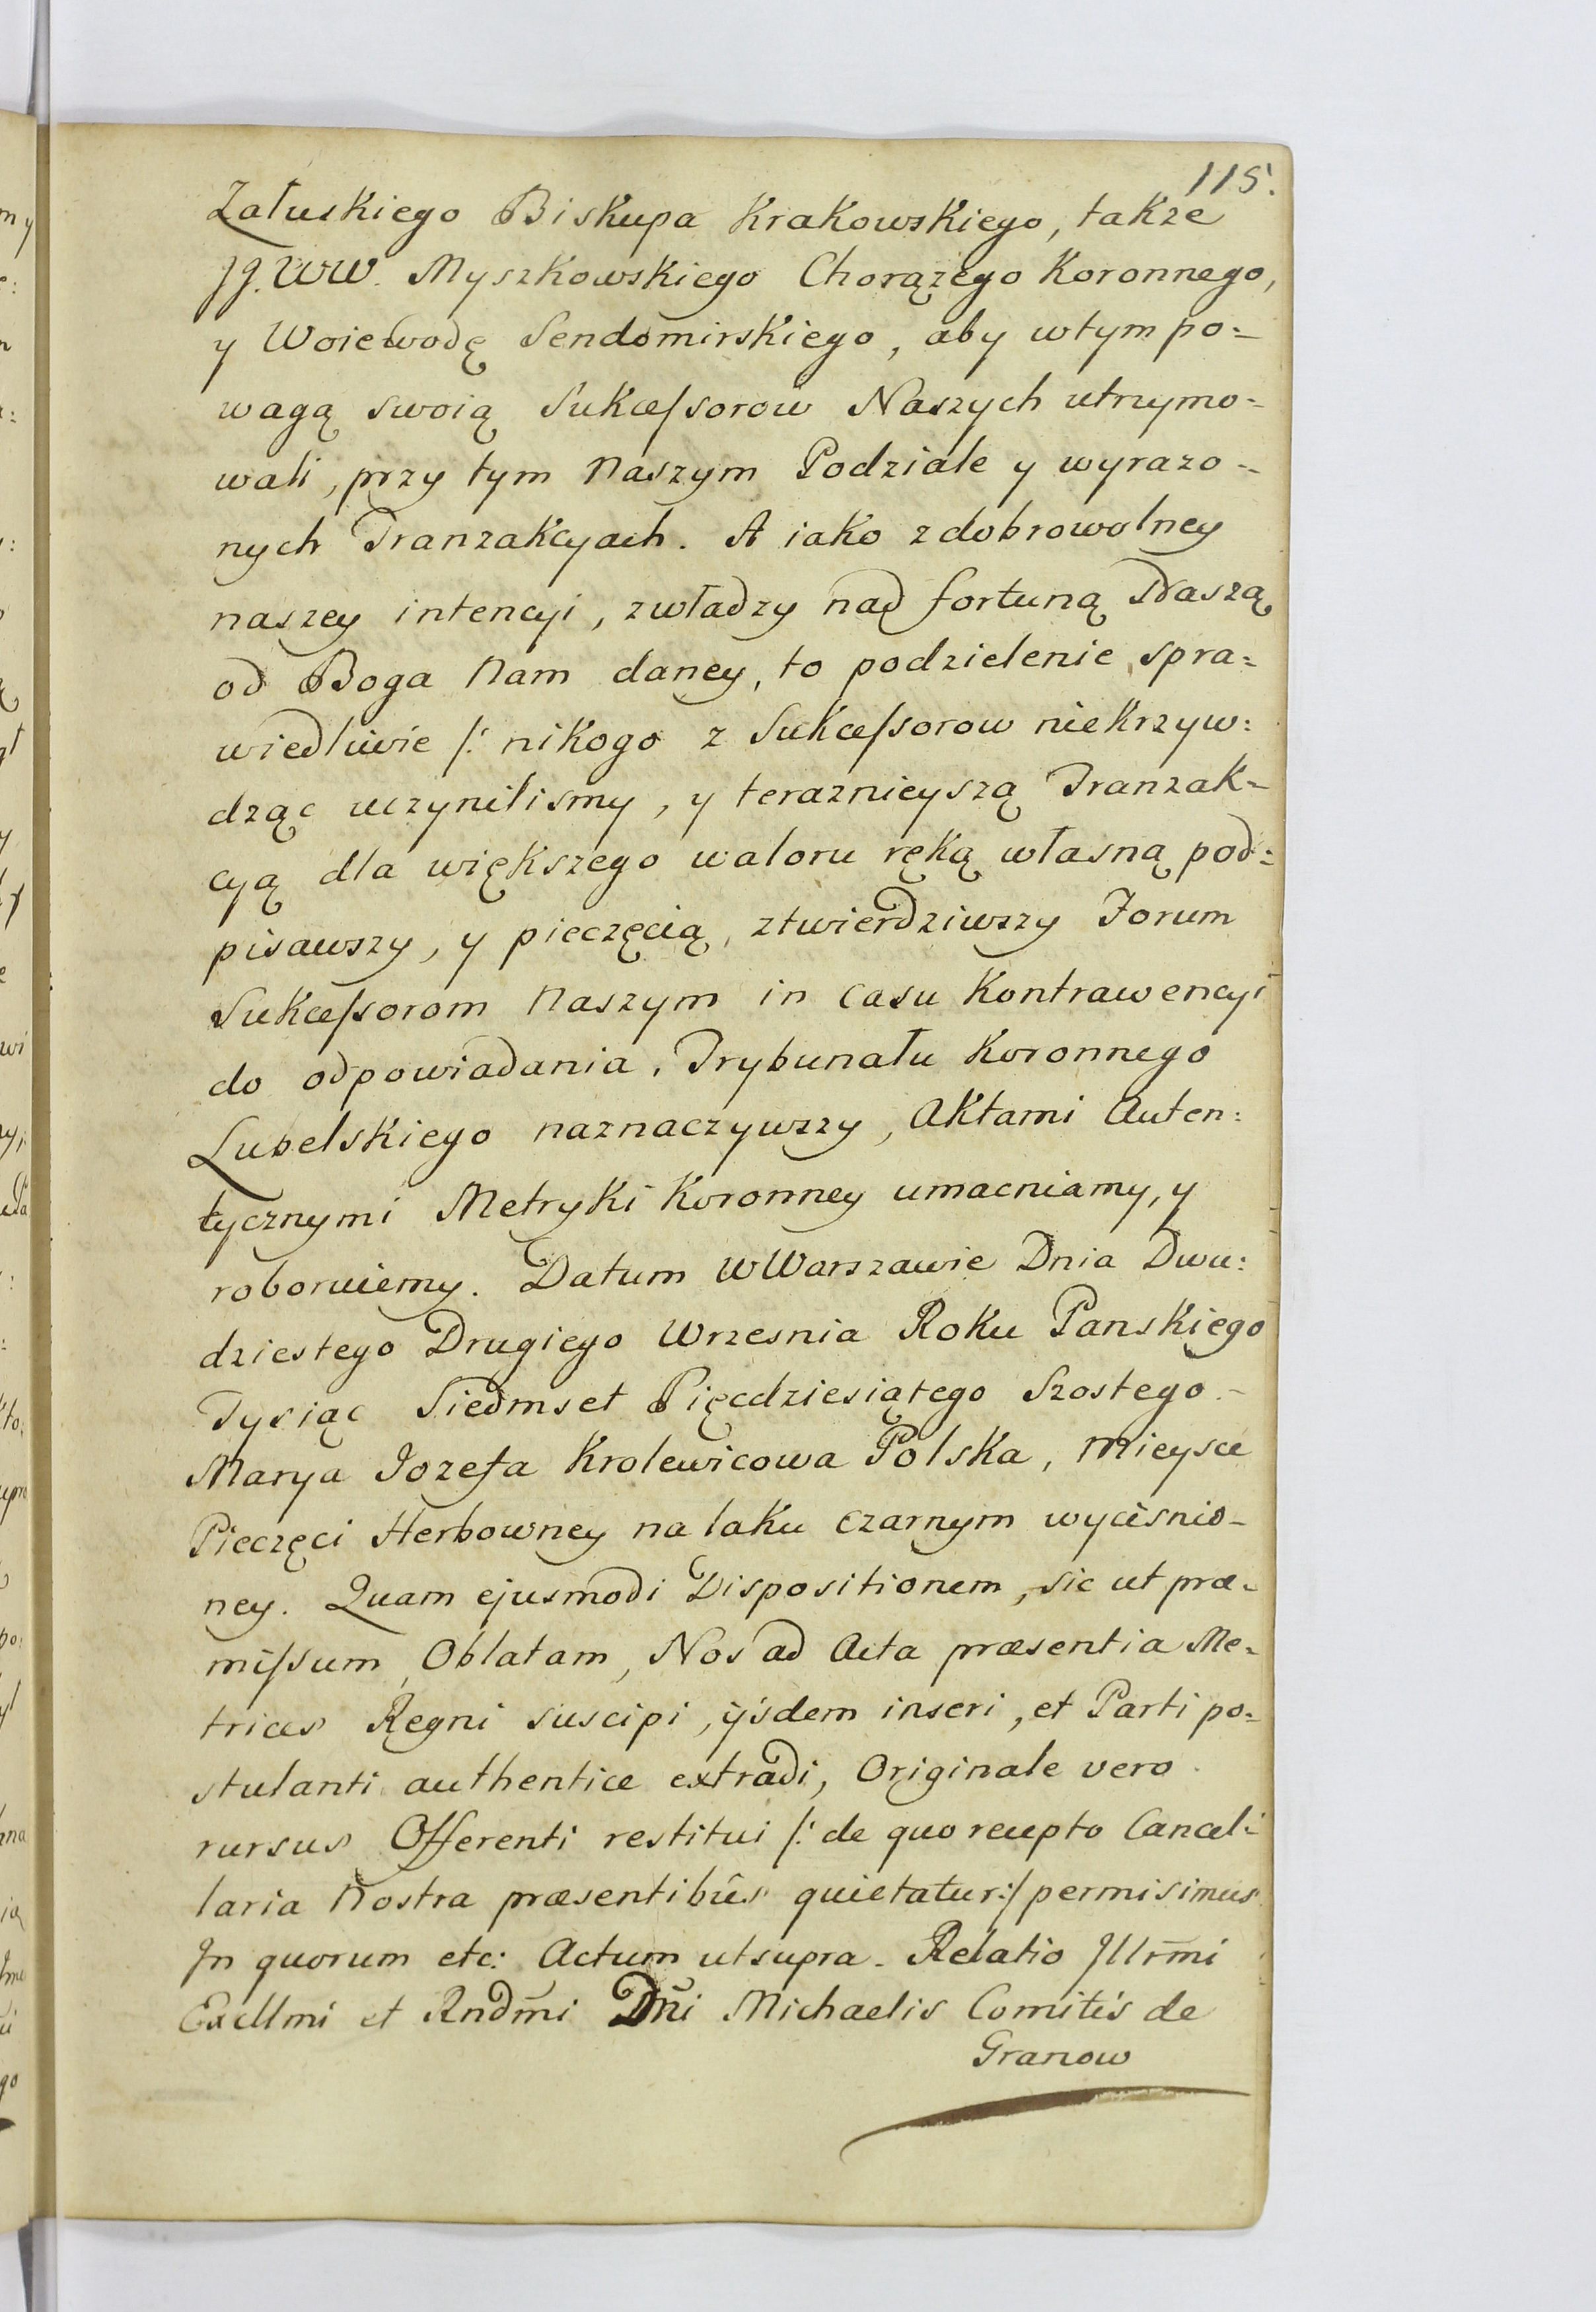 115.
Załuskiego Biskupa Krakowskiego, także
JJ. WW. Myszkowskiego Chorążego Koronnego,
y Woiewodę Sendomirskiego, aby wtym po=
wagą swoią Sukcessorow Naszych utrzymo=
wali, przy tym Naszym Podziale y wyrazo=
nych Tranzakcyach. A iako zdobrowolney
naszey intencyi, zwładzy nad fortuną Naszą
od Boga Nam daney, to podzielenie spra=
wiedliwie /: nikogo z Sukcessorow niekrzyw:
dząc uczynilismy, y teraznieyszą Tranzak=
cyą dla większego waloru ręką własną pod=
pisawszy, y pieczęcią ztwierdziwszy Forum
Sukcessorom Naszym in casu Kontrawencyi
do odpowiadania, Trybunału Koronnego
Lubelskiego naznaczywszy, Aktami Auten:
tycznymi Metryki Koronney umacniamy, y
roboruiemy. Datum w Warszawie Dnia Dwu:
dziestego Drugiego Wrzesnia Roku Panskiego
Tysiąc Siedmset Pięcdziesiątego Szostego.
Marya Jozefa Krolewicowa Polska, Mieysce
Pieczęci Herbowney na laku czarnym wycisnio=
ney. Quam ejusmodi Dispositionem, sic ut præ=
missum, Oblatam, Nos ad Acta præsentia Me=
trices Regni suscipi, ijsdem inseri, et Parti po=
stulanti authentice extradi, Originale vero
rursus Offerenti restitui /: de quo recepto Cancel:
laria Nostra præsentibûs quietatur:/ permisimus
In quorum etc: Actum ut supra. Relatio Illrmi
Excllmi et Rndmi Dñi Michaelis Comitis de
Granow